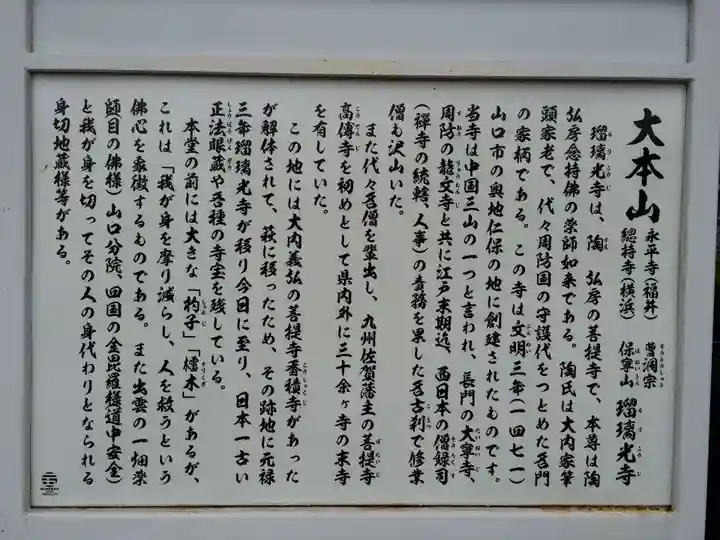 大本山 永平寺(福井) 總持寺(横浜) 曹洞宗 保寧山 瑠璃光寺
瑠璃光寺は、陶 弘房の菩提寺で、本尊は陶
弘房念持佛の薬師如来である。陶氏は大内家筆
頭家老で、代々周防国の守護代をつとめた名門
の家柄である。この寺は文明三年(一四七一)
山口市の奥地仁保の地に創建されたものです。
当寺は中国三山の一つと言われ、長門の大寧寺、
周防の龍文寺と共に江戸末期迄、西日本の僧録司
(禅寺の統轄、人事)の責務を果した名古刹で修業
僧も沢山いた。
また代々名僧を輩出し、九州佐賀藩主の菩提寺
高傳寺を初めとして県内外に三十余ヶ寺の末寺
を有していた。
この地には大内義弘の菩提寺香積寺があった
が解体されて、萩に移ったため、その跡地に元禄
三年瑠璃光寺が移り今日に至り、日本一古い
正法眼蔵や各種の寺宝を残している。
本堂の前には大きな「杓子」「擂木」があるが、
これは「我が身を摩り減らし、人を救うという
佛心を象徴するものである。また出雲の一畑薬
師目の佛様)山口分院、四国の金毘羅様道中安全)
と我が身を切ってその人の身代わりとなられる
身切地蔵様等がある。